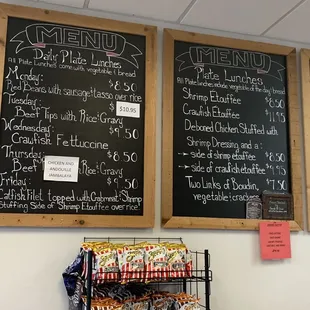 MENU
Daily Plate Lunches
All Plate Lunches come with vegetable & bread
Monday: $8.50
Red Beans with sausage + tasso over rice
Tuesday: $10.95
Beef Tips with Rice & Gravy
Wednesday: $9.50
Crawfish Fettuccine
Thursday: $8.50
CHICKEN AND
ANDOUILLE
JAMBALAYA
Rice & Gravy
Friday: $9.50
Catfish Filet topped with Crabmeat & Shrimp
Stuffing Side of Shrimp Etouffee over rice
MENU
Plate Lunches
All Plate Lunches include vegetable of the day & bread
Shrimp Etouffee $8.50
Crawfish Etouffee $9.50
Deboned Chicken Stuffed with
Shrimp Dressing and a:
side of shrimp etouffee $8.50
side of crawfish etouffee $9.50
Two Links of Boudin,
vegetable & crackers $7.50